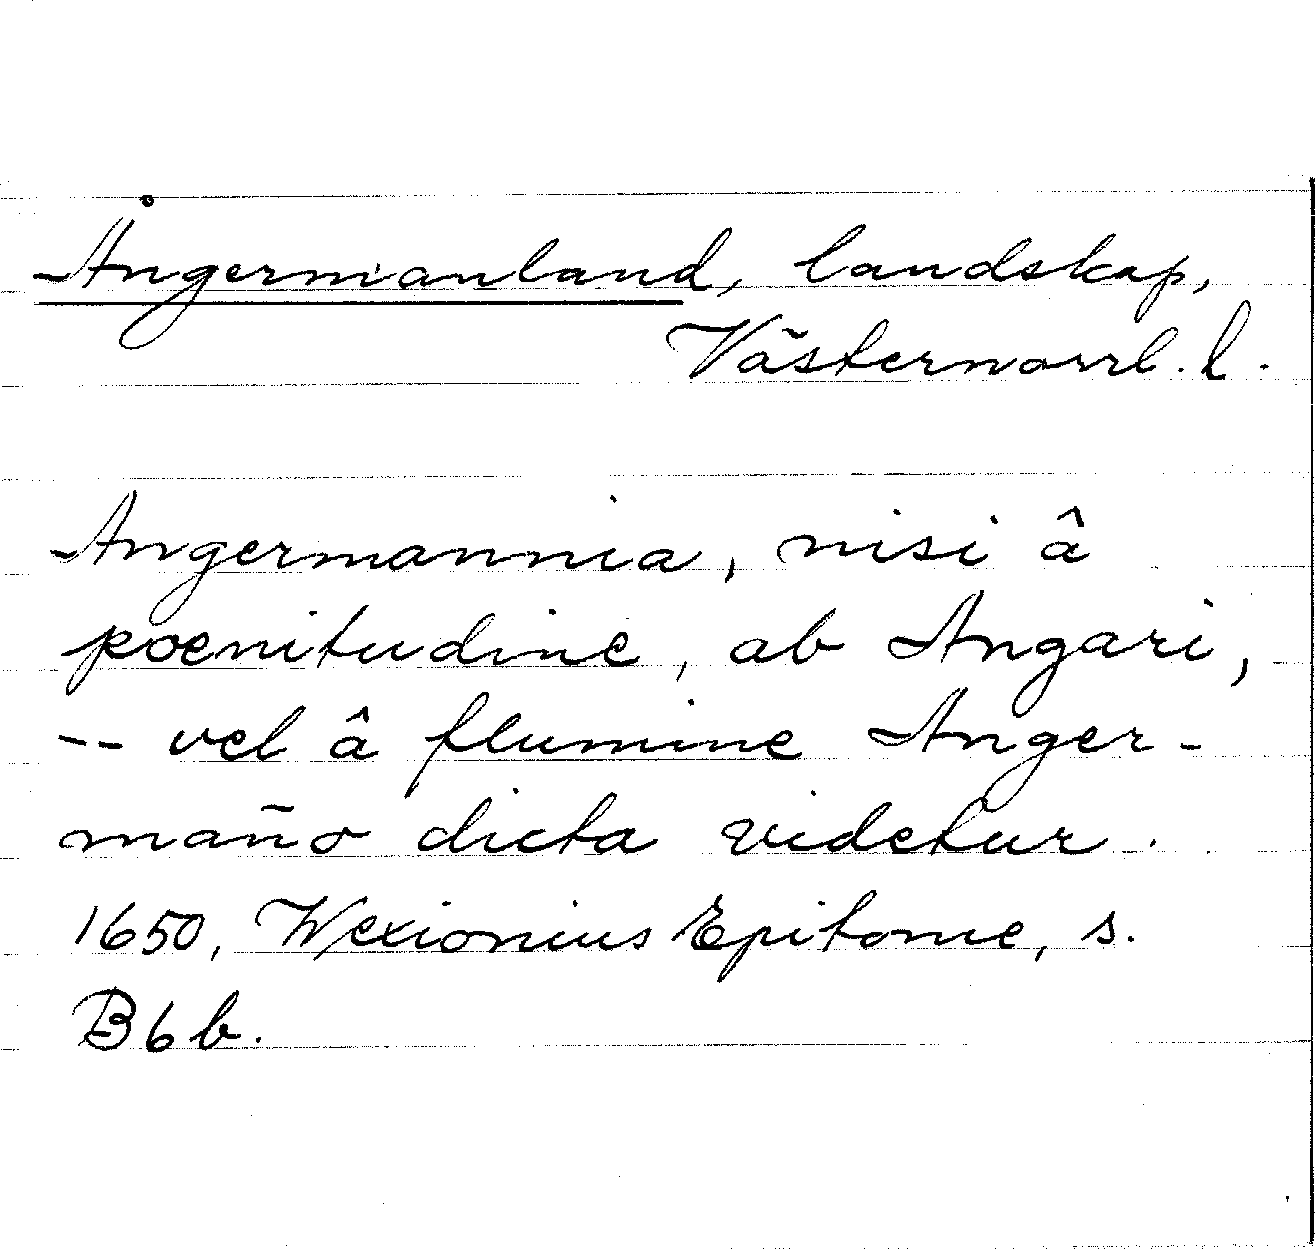 Ångermanland, landskap,
Västernorrl. l.
Angermannia, nisi â
poenitudine, ab Angari,
-- vel â flumine Anger-
mañō dicta videtur.
1650, Wexionius Epitome, s.
B6b.